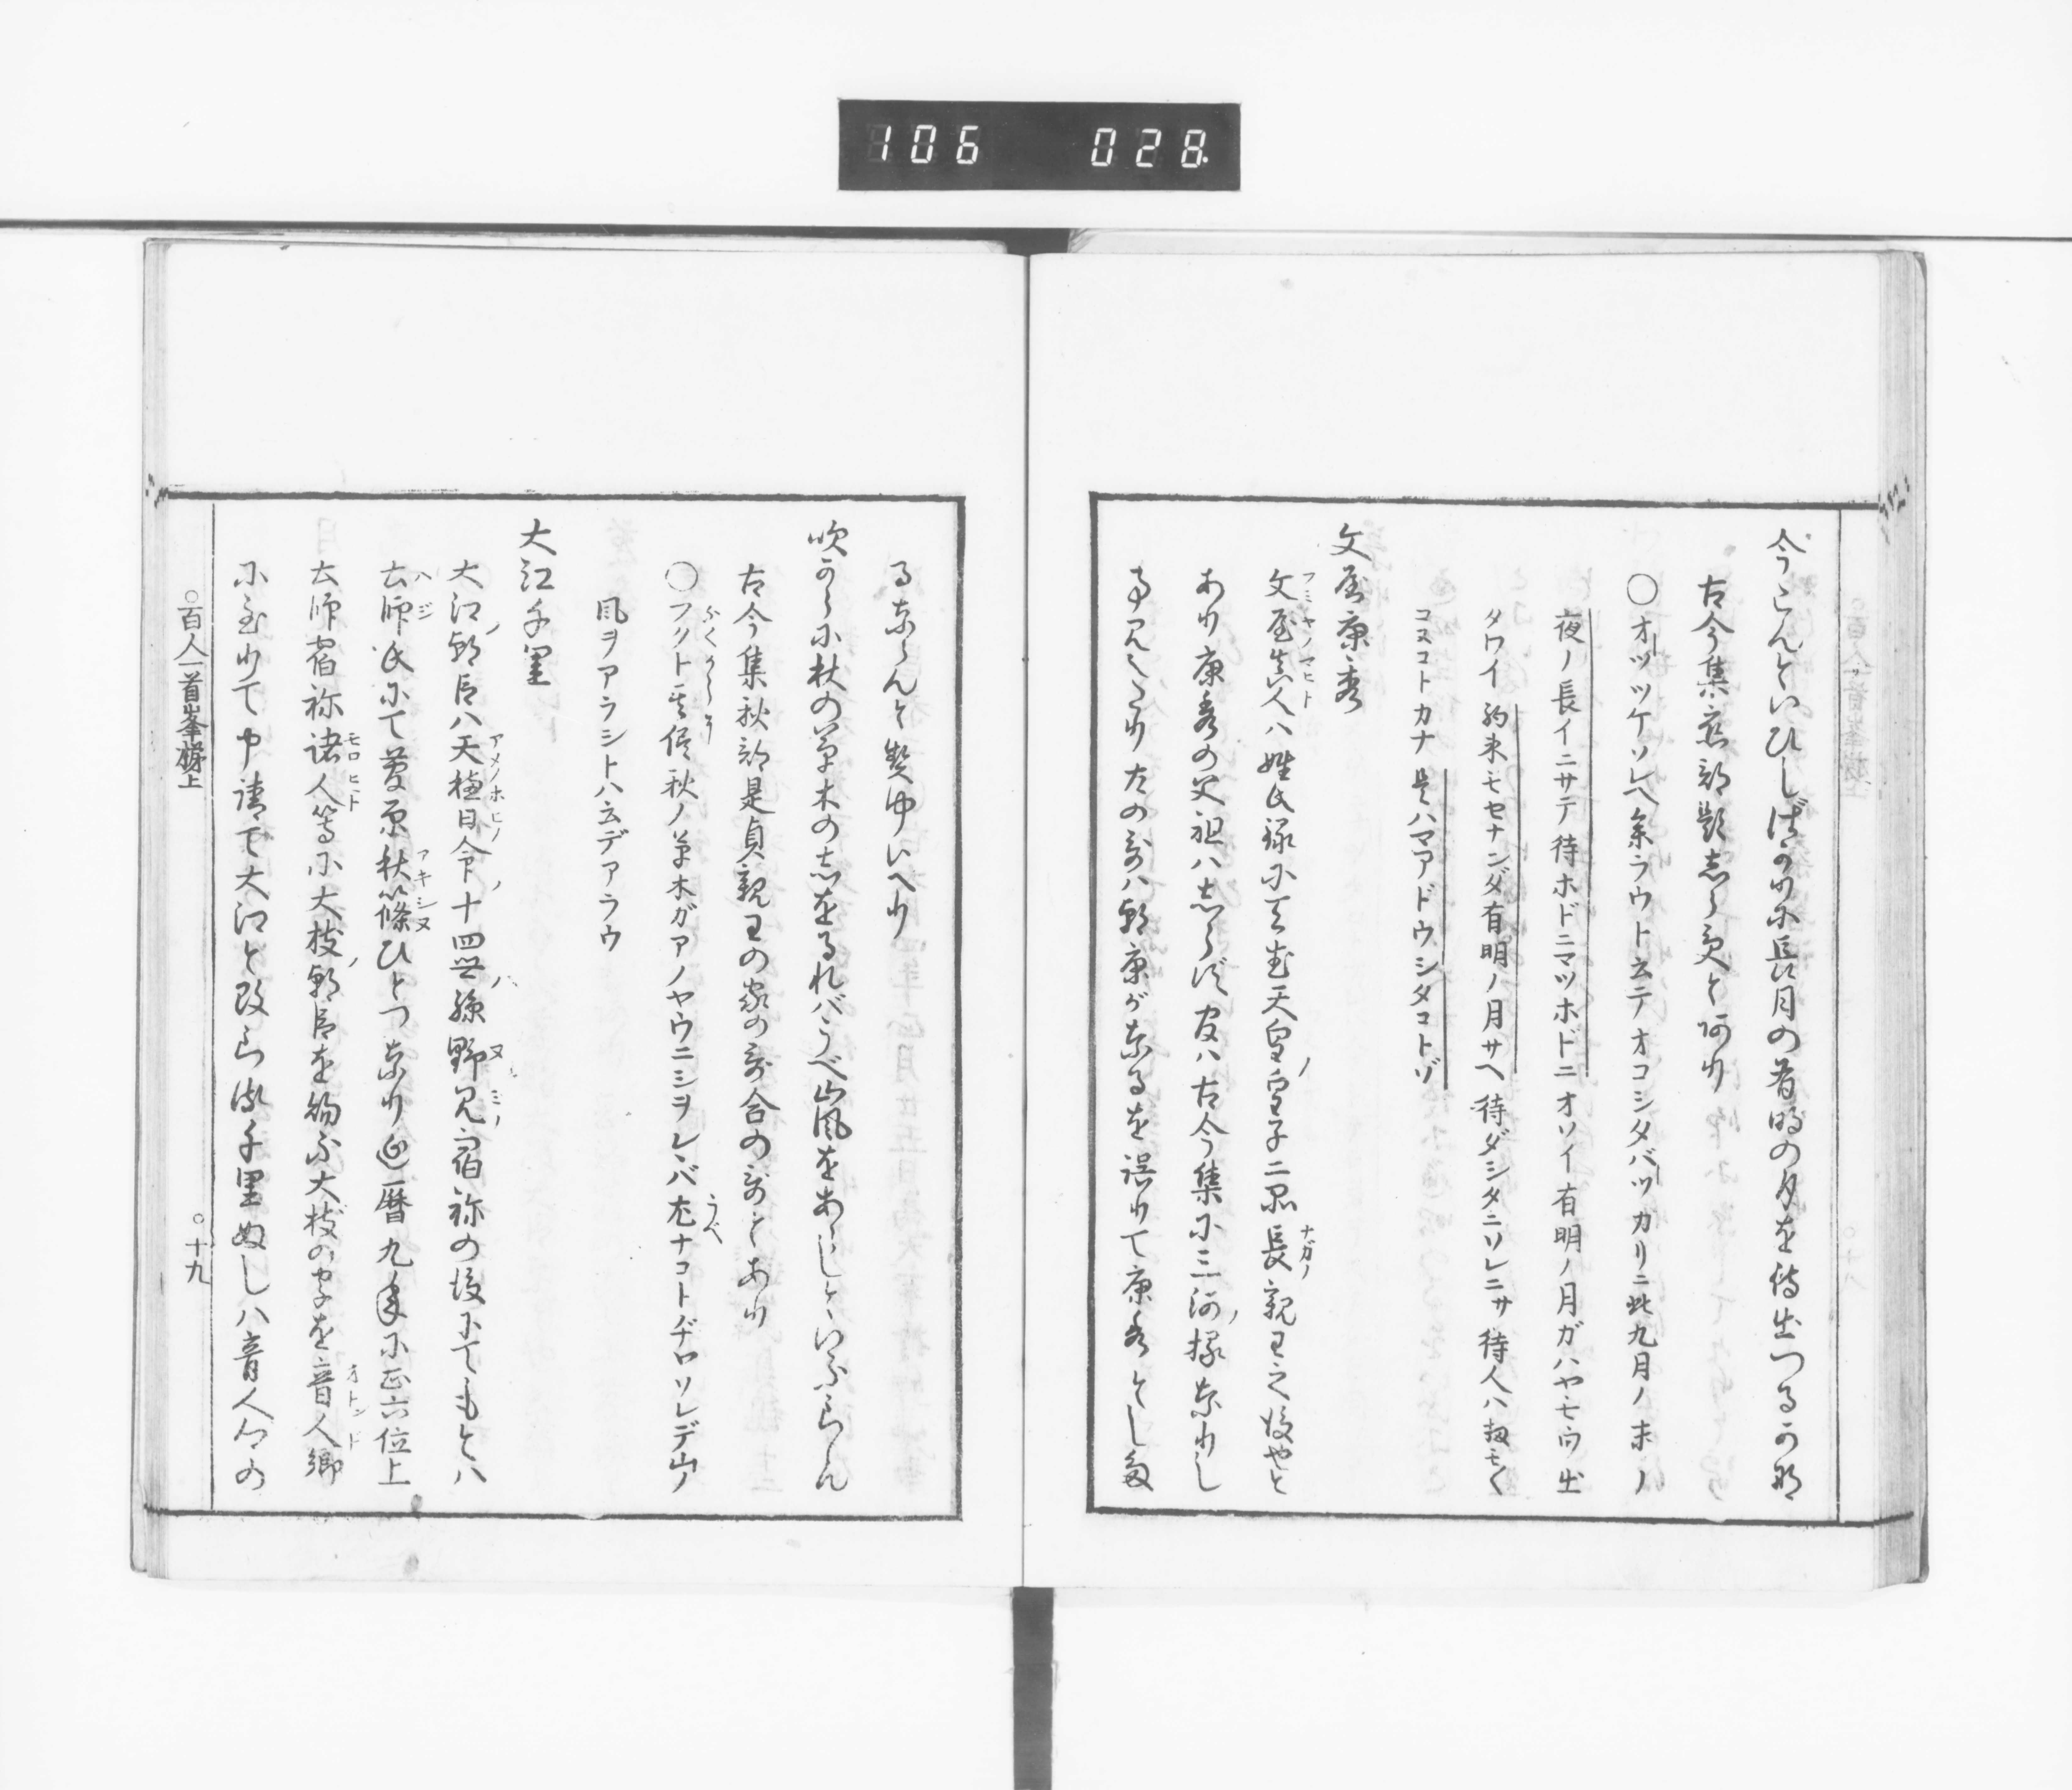 106 028
今こんといひしばかりに長月の有明の月を待出つるかな
古今集恋部題しらずと阿り
○オーツツケソレヘ参ラウト云テオコシタバツカリニ此九月ノ末ノ
夜ノ長イニサテ待ホドニマツホドニオソイ有明ノ月ガハヤモウ出
タワイ約束モセナンダ有明ノ月サヘ待ダシタニソレニサ待人ハ扨モ〱
コヌコトカナ是ハマアドウシタコトゾ
文屋康秀
文屋真人ハ姓氏録に天武天皇ノ皇子二品長親王之後也と
あり康秀の父祖ハしらず官ハ古今集に三河ノ掾なりし
事見えたり左の哥ハ朝康がなるを誤りて康秀とし多
るならんと契沖いへり
吹からに秋の草木のしをるればうべ山風をあらしといふらん
古今集秋部是貞親王の家の哥合の哥とあり
○フクト其儘秋ノ草木ガアノヤウニシヲレヽバ尤ナコトヂヤソレデ山ノ
風ヲアラシトハ云デアラウ
大江千里
大江ノ朝臣ハ天穂日命ノ十四世ノ孫野見ノ宿祢の後にてもとハ
土師氏にて菅原秋篠ひとつなり延暦九年に正六位上
土師宿祢諸人等に大枝ノ朝臣を賜ふ大枝の字を音人卿
に至りて申請て大江と改らる千里ぬしハ音人の
○百人一首峯梯上
○十九